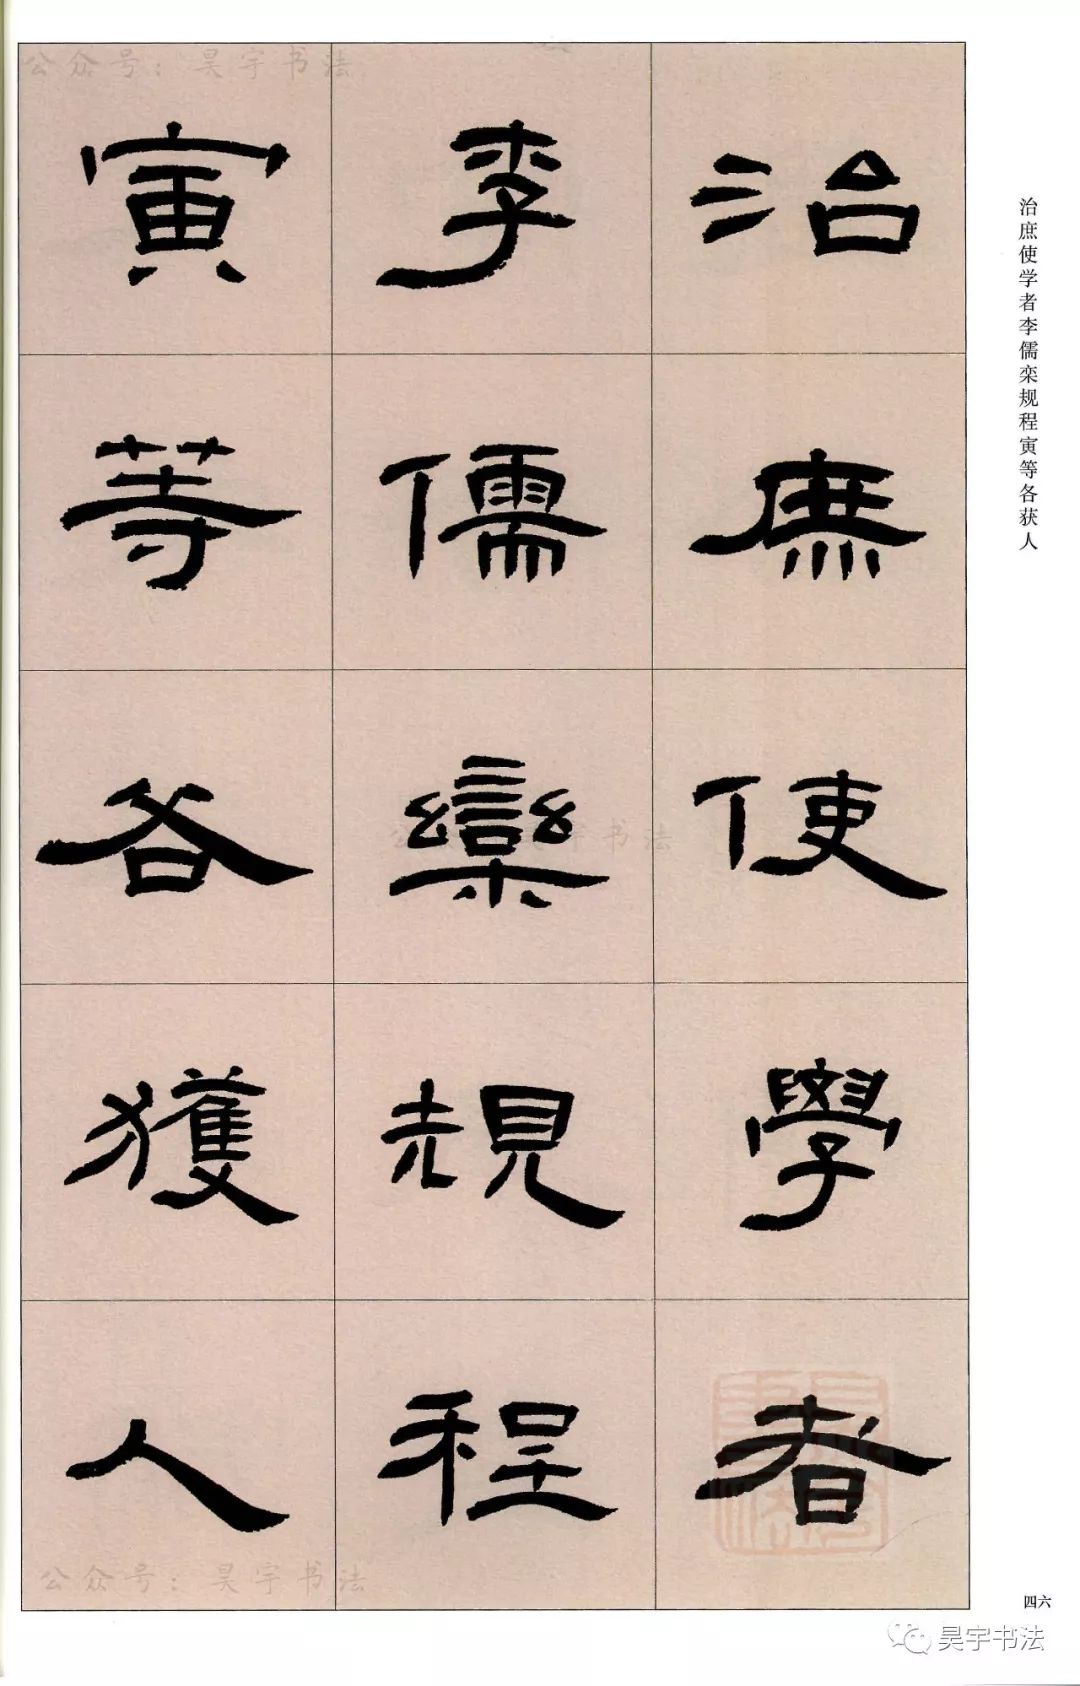 公众号：昊宇书法
治庶使學者
李儒欒規程
寅等各獲人
治庶使学者李儒栾规程寅等各获人
公众号：昊宇书法
四六
昊宇书法